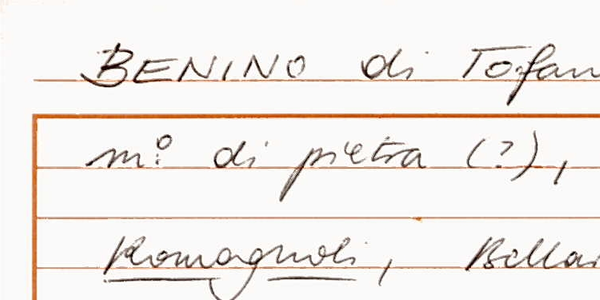 BENINO di Tofan
mº: di pietra (?),
Romagnoli, Bellar